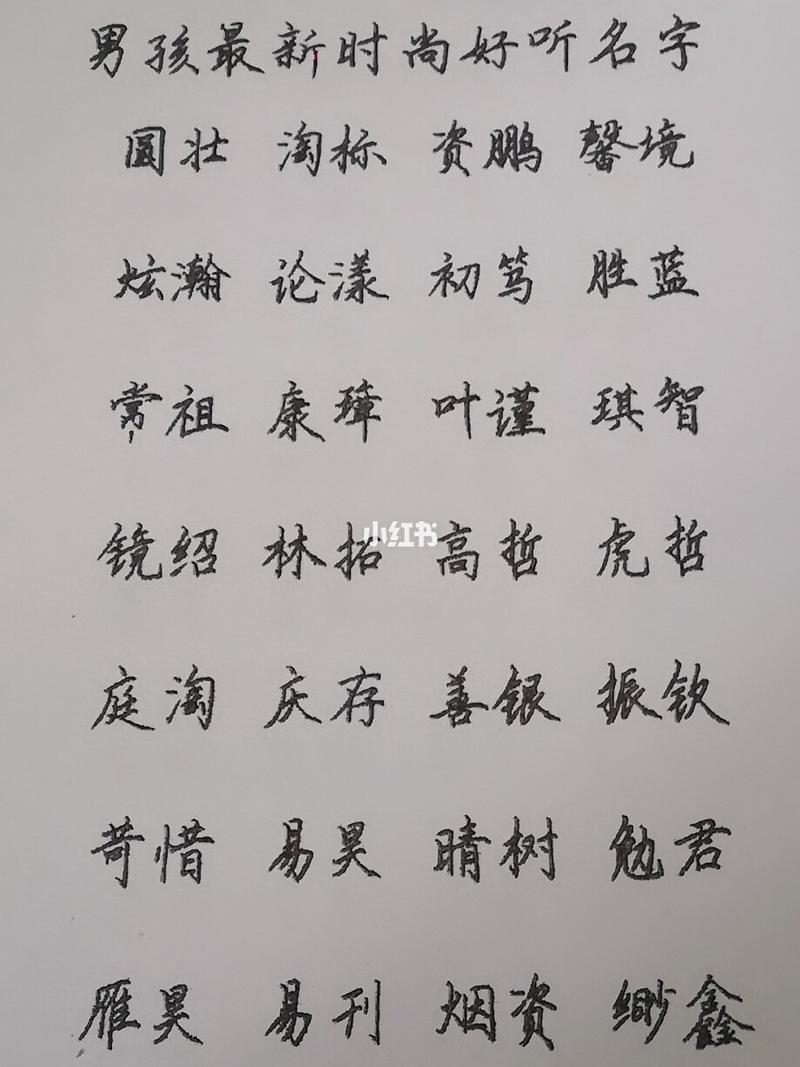 男孩最新时尚好听名字
圆壮 淘标 资鹏 馨境
炫瀚 论漾 初笃 胜蓝
常祖 康璋 叶谨 琪智
小红书
镜绍 林拓 高哲 虎哲
庭淘 庆存 善银 振钦
苛惜 易昊 晴树 勉君
雁昊 易刊 烟资 缈鑫